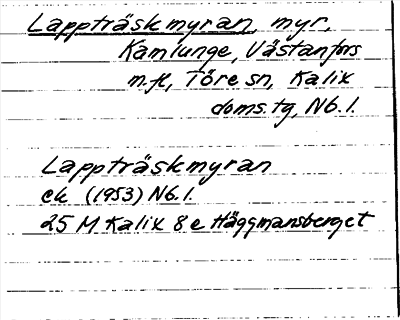 Lappträskmyran, myr,
Kamlunge, Västanfors
m.fl., Töre sn, Kalix
doms.tg, Nb. l.
Lappträskmyran
ek (1953) Nb. l.
25 M Kalix 8 e Häggmansberget